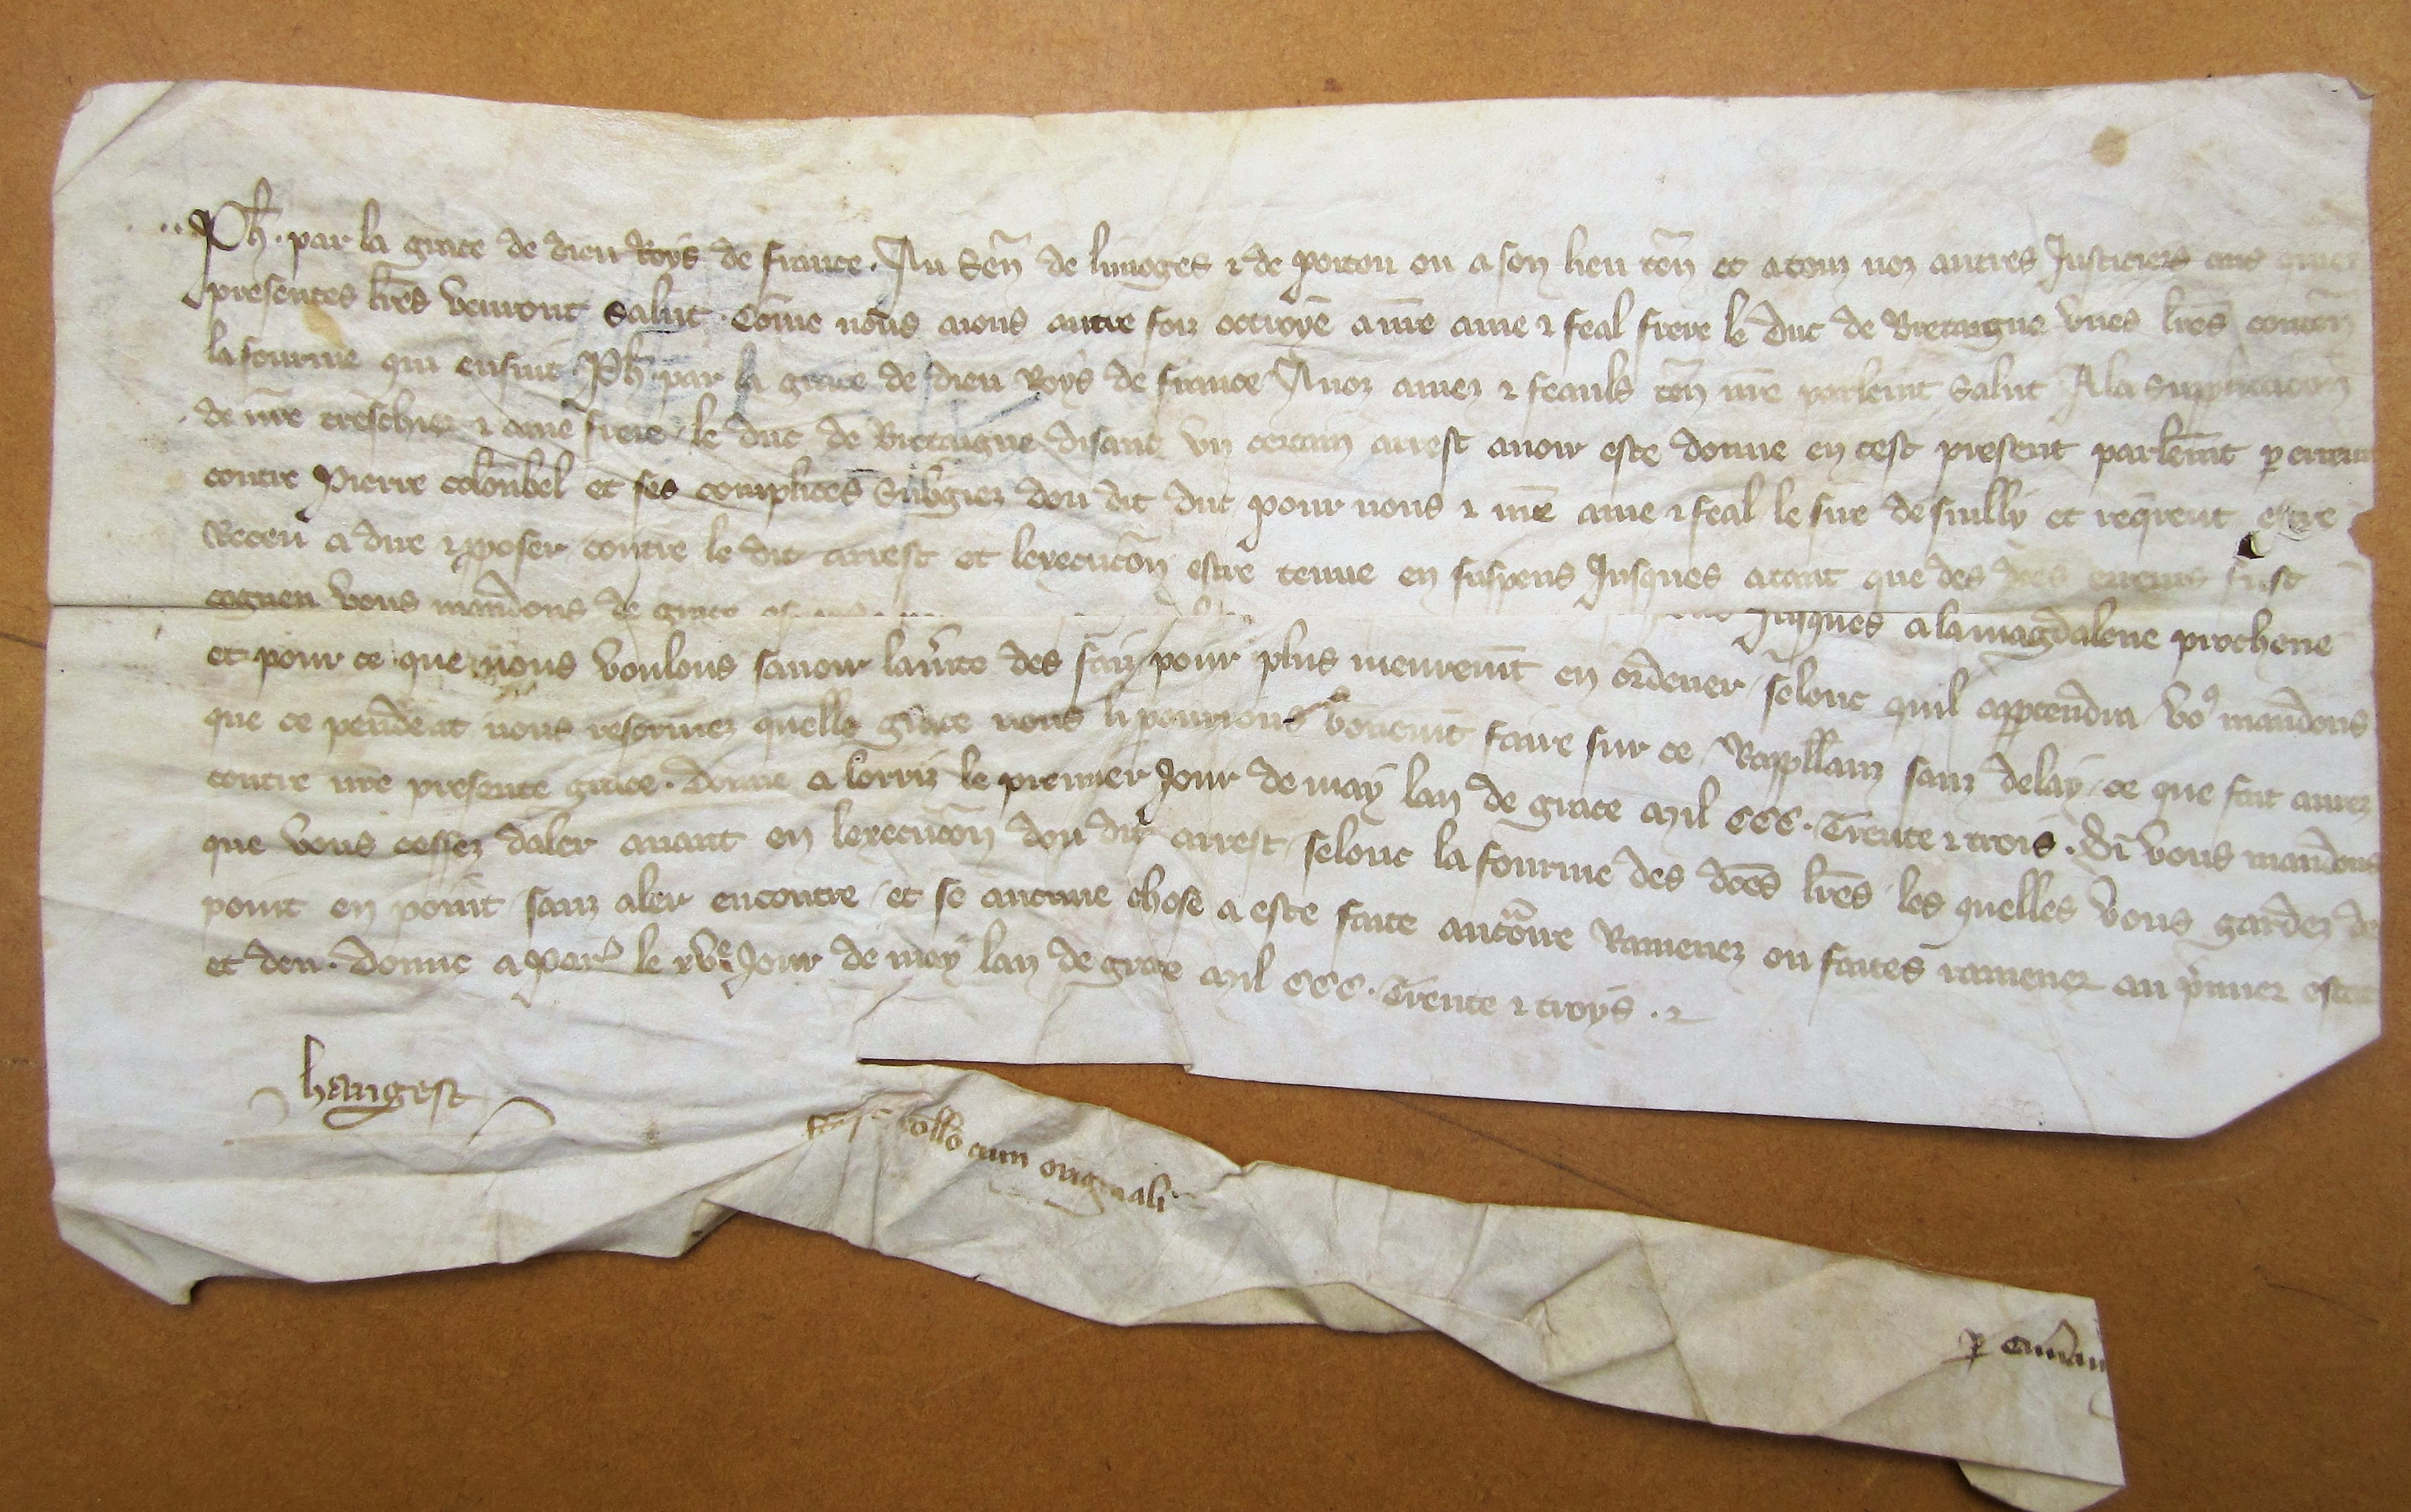 Ph. par la grace de dieu Roys de france. Au Sen̄ de limoges ⁊ de poitou ou a son lieu ten̄ et a touz noz autres Justiciers
presentes lr̄es verront Salut. Com̄e nous aions autre foiz octroye a nr̄e ame ⁊ feal frere le duc de Bretaigne unes lr̄es conten̄
la fourme qui ensuit Ph. par la grace de dieu Roys de france A noz amez ⁊ feauls ten̄ nr̄e parlem̄t Salut A la Supplicacion
de nr̄e treschier ⁊ ame frere le duc de Bretaigne disant un certain arrest avoir este donne en cest present parlem̄t ꝑ erreur
contre Pierre colombel et ses complices Subgiez dou dit duc pour nous ⁊ nr̄e ame ⁊ feal le sire de suilly et req̄rent estre
Receu a dire ⁊ ꝓposer contre le dit arrest et lexecucōn estre tenue en suspens Jusques atant que des d̄es erreurs fust
cogneu vous mandons de grace Jusques a la magdalene prochene
et pour ce que nous voulons savoir la v̄ite des faiz pour plus meurem̄t en ordener selonc quil appartendra voꝰ mandons
que ce pendent nous refourmez quelle grace nous li pourrons bonem̄t faire sur ce Rappellanz sanz delay ce que fait avez
contre nr̄e presente grace. Donne a lorriz le premier Jour de may lan de grace mil CCC. Trente ⁊ trois. Si vous mandons
que vous cessez daler avant en lexecucōn dou dit arrest selonc la fourme des dc̄es lr̄es les quelles vous gardez de
point en point sanz aler encontre et se aucune chose a este faite au contr̄ire Ramenez ou faites ramener au p̄mier estat
et deu. Donne a Par̄ le xvͤ Jour de may lan de grace mil CCC. Trente ⁊ troys. ⁊
hangest
coll̄o cum originali
ꝑ cam̄am